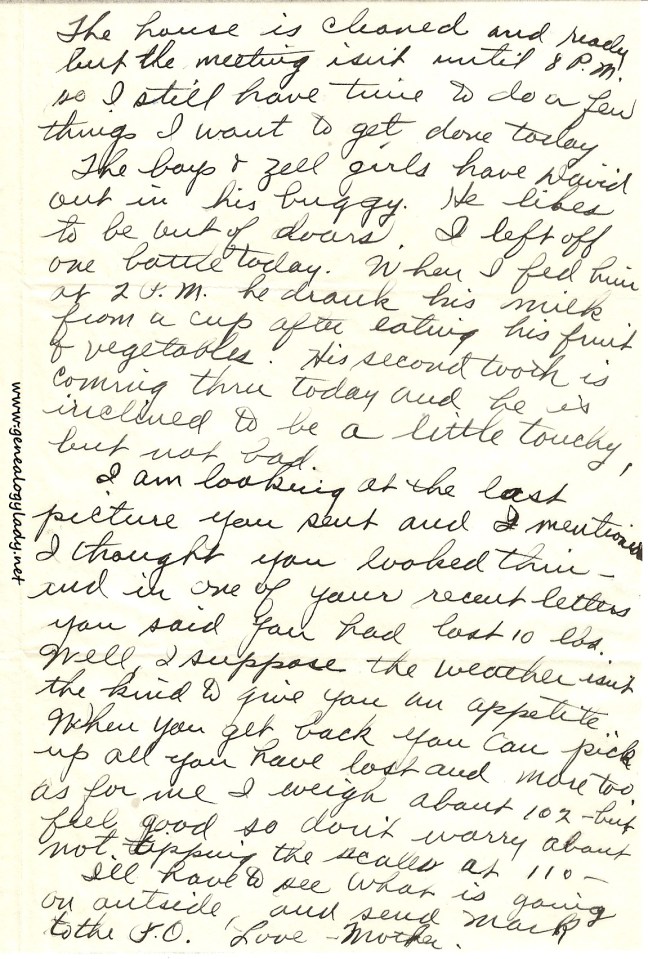 The house is cleaned and ready
but the meeting isn't until 8 P.M.
so I still have time to do a few
things I want to get done today
The boys & Zell girls have David
out in his buggy. He likes
to be out of doors. I left off
one bottle today. When I fed him
at 2 P.M. he drank his milk
from a cup after eating his fruit
& vegetables. His second tooth is
coming thru today and he is
inclined to be a little touchy,
but not bad.
I am looking at the last
picture you sent and I mentioned
I thought you looked thin -
and in one of your recent letters
you said you had lost 10 lbs.
Well, I suppose the weather isn't
the kind to give you an appetite
When you get back you can pick
up all you have lost and more too
as for me I weigh about 102 - but
feel good so don't worry about
not tipping the scales at 110 -
I'll have to see what is going
on outside, and send Mark
to the P.O. Love - Mother.
www.genealogylady.net